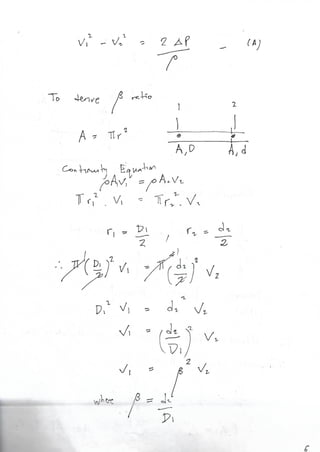 V₁² - V₂² = 2 ΔP / ρ — (A)
To derive β ratio
1 2
A = πr²
A, D A, d
Continuity Equation
ρAV₁ = ρA₂V₂
π r₁² . V₁ = π r₂² . V₂
r₁ = D₁/2 , r₂ = d₂/2
∴ π (D₁/2)² V₁ = π (d₂/2)² V₂
D₁² V₁ = d₂² V₂
V₁ = (d₂/D₁)² V₂
V₁ = β² V₂
where β = d₂/D₁